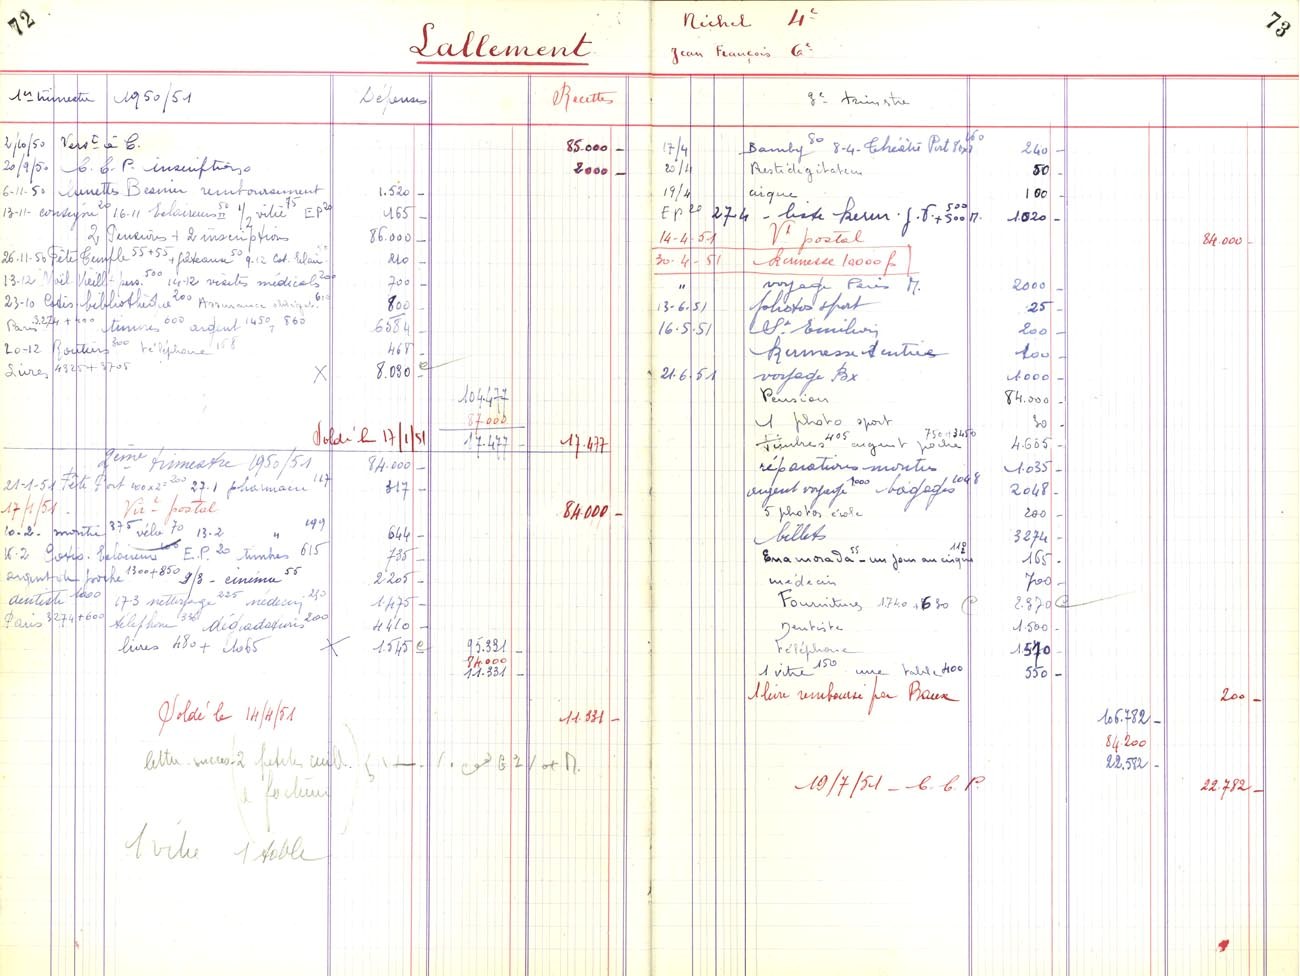 72
Lallement
1er trimestre 1950/51 Dépenses Recettes
2/10/50 Verst à C. 85.000 -
20/9/50 C. C. P. inscriptions 2000 -
6-11-50 lunettes Besnier remboursement 1.520 -
13-11- consigne 20 16-11 Eclaireurs 50 1/2 vitre 75 EP 20 165 -
2 Pensions + 2 inscriptions 86.000 -
26-11-50 Fête Temple 55+55 + gâteaux 50 9-12 Cot. Eclair. 210 -
13-12 Noël Vieill. pers. 500 14-12 visites médicales 200 700 -
23-10 Cotis. bibliothèque 200 Assurance 610 800 -
Paris 3274 + 400 timbres 600 argent 1450, 860 6584 -
20-12 Routiers 300 téléphone 168 468 -
Livres 4325 + 3705 X 8.030 -
104.477
87.000
Soldé le 17/1/51 17.477 - 17.477
2ème trimestre 1950/51 84.000 -
21-1-51 Fête Port 100x2= 200 27.1 pharmacie 117 317 -
17/1/51 - Virt postal 84.000 -
10-2- montre 375 vélo 70 13-2 " 199 644 -
16-2 Cotis. Eclaireurs 100 E.P. 20 timbres 615 735 -
argent de poche 1300+850 9/3 - cinéma 55 2205 -
dentiste 1000 17-3 nettoyage 225 médecin 250 1475 -
Paris 3274+600 téléphone 336 dégradations 200 4410 -
livres 480 + 1065 X 1.545 95.331 -
84.000
11.331 -
Soldé le 14/4/51 11.331 -
lettre - sucres - 2 petites cuill.
1 vitre 1 table
73
Michel 4e
Jean François 6e
3e trimstre
17/4 Bamby 80 8-4- Théâtre Port Royal 160 240 -
20/4 Prestidigitateur 50 -
19/4 cirque 100 -
EP 20 27-4 - liste kerm. J.F. 500 + 500 M. 1020 -
14-4-51 Vt postal 84.000 -
30-4-51 Kermesse 10000 f
" voyage Paris M. 2000 -
13-6-51 photos sport 25 -
16-5-51 St Emilion 200 -
Kermesse entrée 100 -
21-6-51 voyage Bx 1000 -
Pension 84.000 -
1 photo sport 30 -
timbres 405 argent poche 750+3450 4.665 -
réparations montres 1.035 -
argent voyage 1000 bagages 1048 2048 -
5 photos école 200 -
billets 3274 -
Enamorada 55 - un jour au cirque 110 165 -
médecin 700 -
Fournitures 1740 + 630 2.370
Dentiste 1.500 -
téléphone 1570 -
1 vitre 150 une table 400 550 -
1 livre remboursé par Baux 200 -
106.782 -
84.200
22.582 -
19/7/51 - C. C. P. 22.782 -